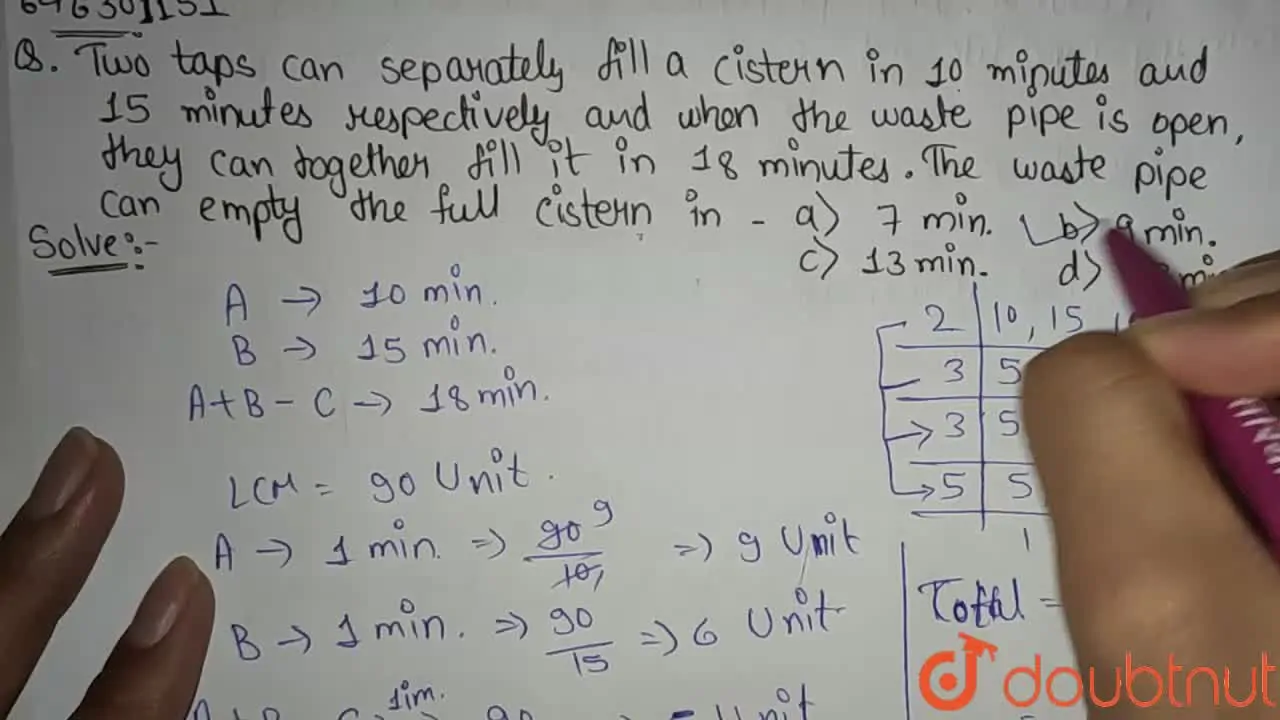 646301151
Q. Two taps can separately fill a cistern in 10 minutes and
15 minutes respectively and when the waste pipe is open,
they can together fill it in 18 minutes. The waste pipe
can empty the full cistern in - a) 7 min. b) 9 min.
c) 13 min. d)
Solve:-
A → 10 min.
B → 15 min.
A+B-C → 18 min.
LCM = 90 Unit.
A → 1 min. => 90/10 9 => 9 Unit
B → 1 min. => 90/15 => 6 Unit
1 min.
90 Unit
2 | 10, 15
3 | 5
3 | 5
→ 5 | 5
1
Total =
doubtnut